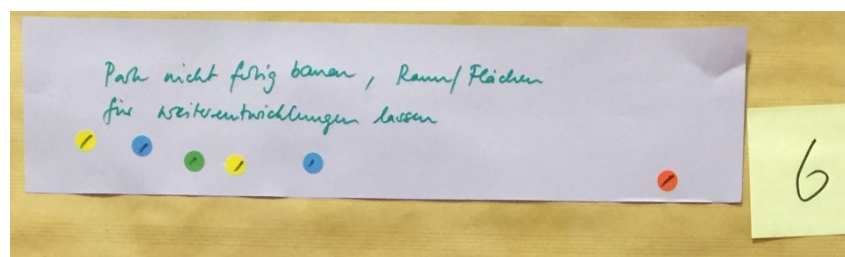 Park nicht fertig bauen, Raum/Flächen
für weiterentwicklungen lassen
6